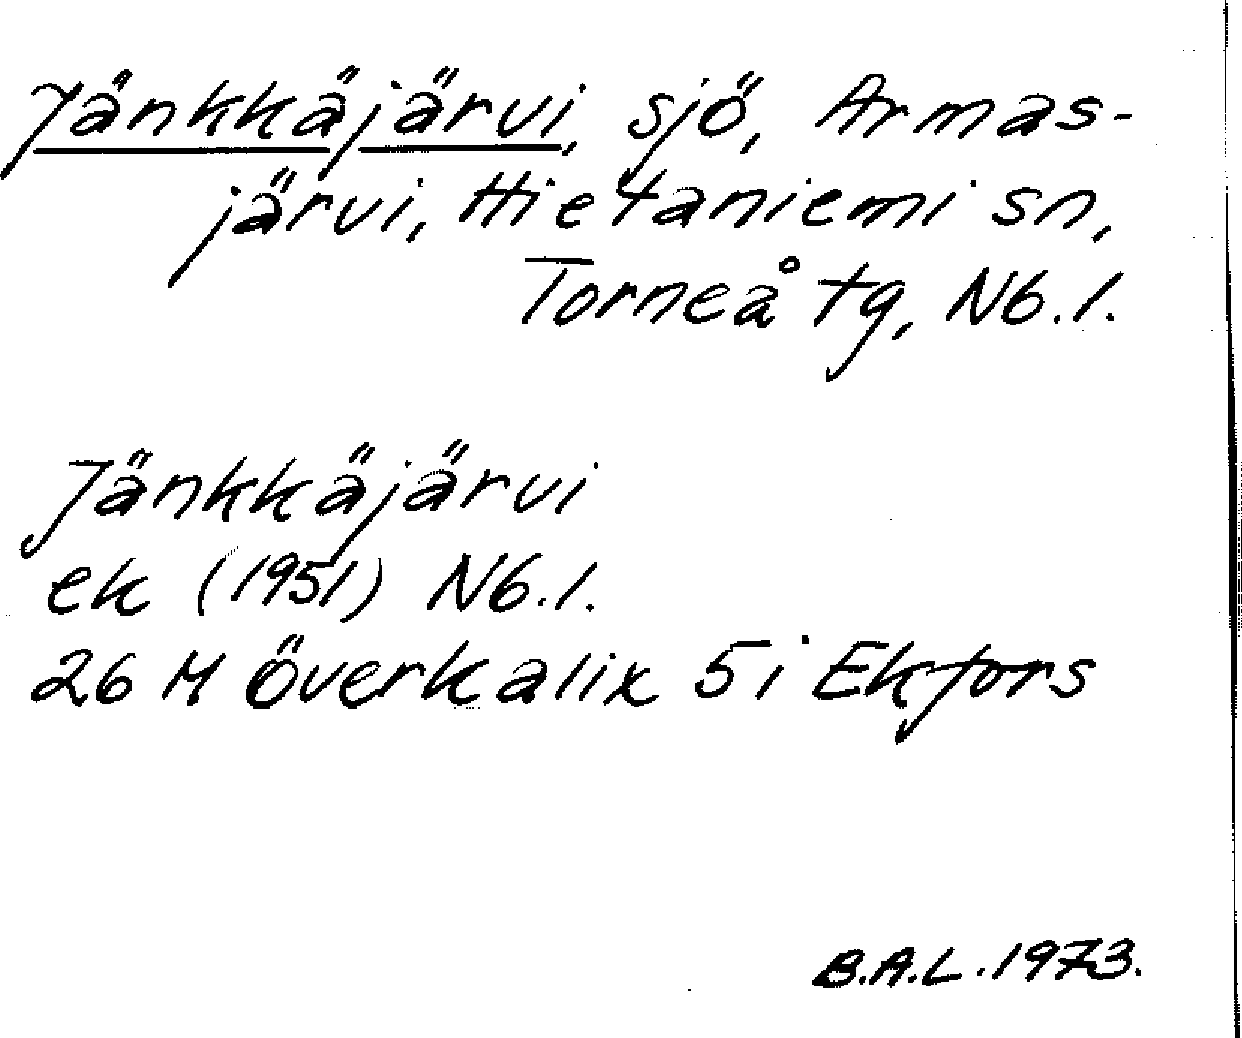 Jänkkäjärvi, sjö, Armas-
järvi, Hietaniemi sn,
Torneå tg, Nb.l.
Jänkkäjärvi
ek (1951) Nb.l.
26 M Överkalix 5i Ekfors
B.A.L. 1973.